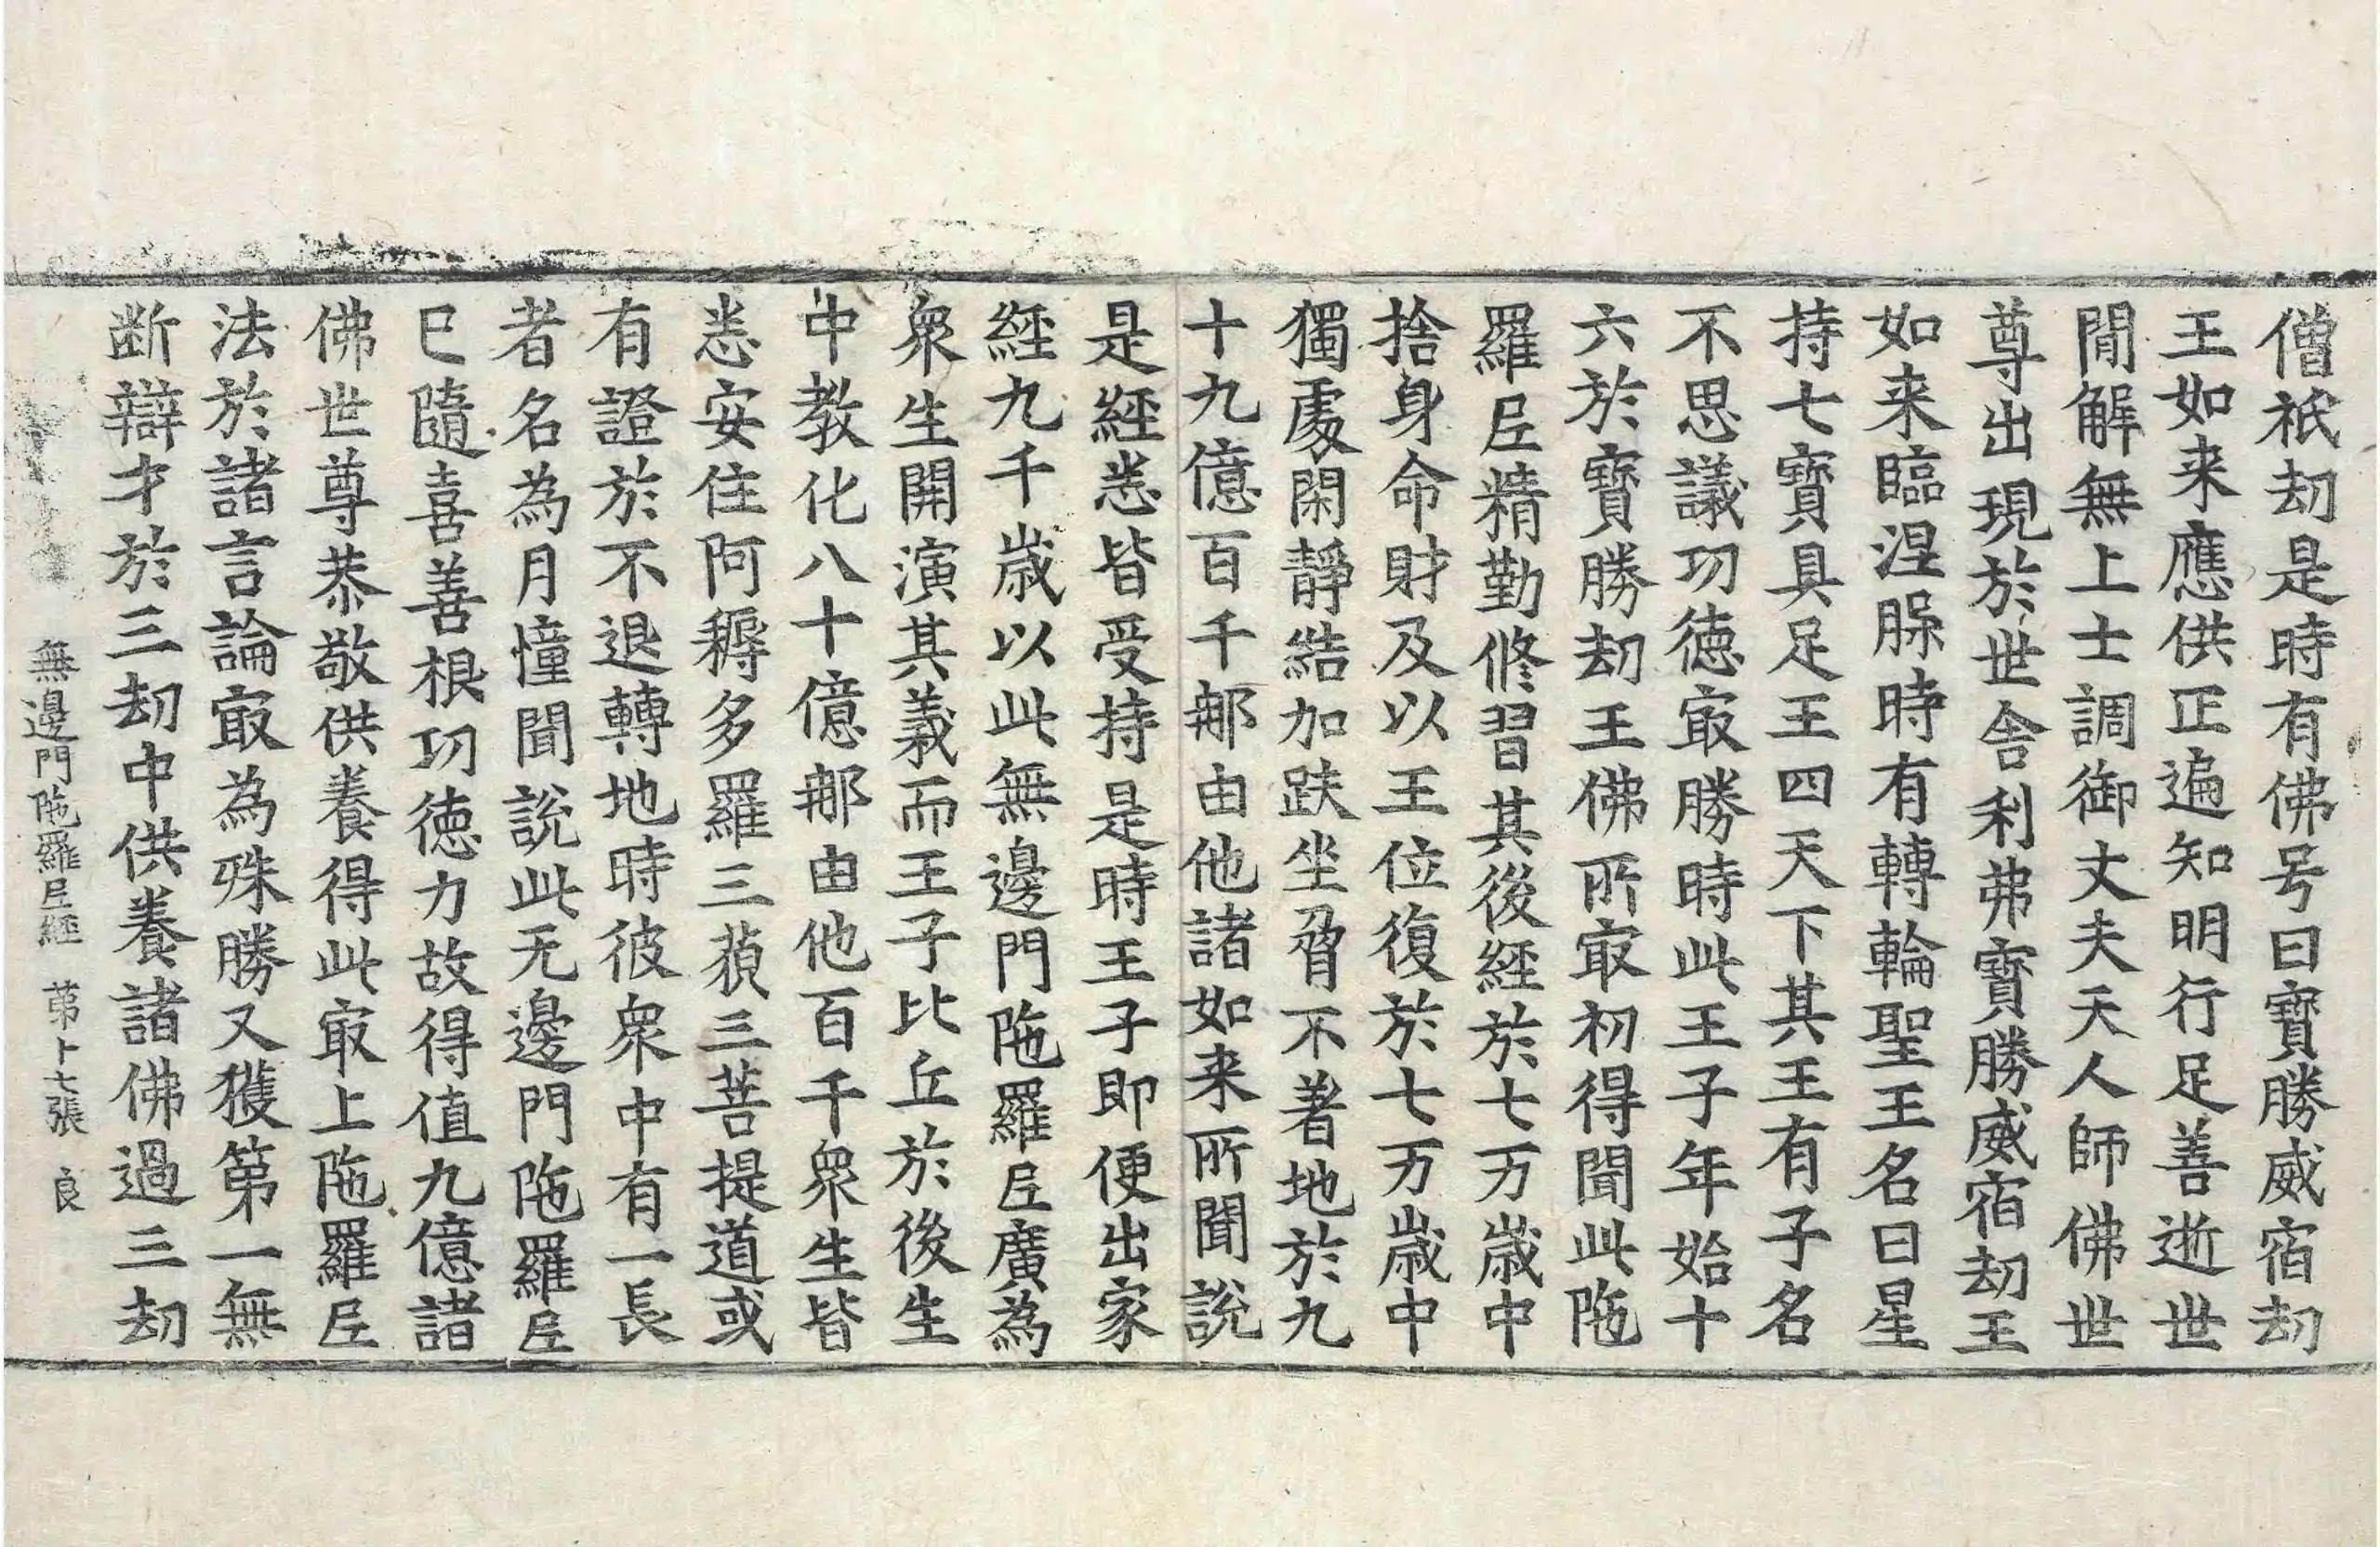 僧祇劫是時有佛号曰寶勝威宿劫
王如来應供正遍知明行足善逝世
閒解無上士調御丈夫天人師佛世
尊出現於世舎利弗寶勝威宿劫王
如来臨涅脲時有轉輪聖王名曰星
持七寶具足王四天下其王有子名
不思議功徳㝡勝時此王子年始十
六於寶勝劫王佛所㝡初得聞此陁
羅𡰱精勤修習其後經於七万歳中
捨身命財及以王位復於七万歳中
獨處閑靜結加趺坐脅不著地於九
十九億百千那由他諸如来所聞說
是經悉皆受持是時王子即便出家
經九千歳以此無邊門陁羅𡰱廣為
衆生開演其義而王子比丘於後生
中教化八十億那由他百千衆生皆
悉安住阿耨多羅三藐三菩提道或
有證於不退轉地時彼衆中有一長
者名為月幢聞說此无邊門陁羅𡰱
已隨喜善根功徳力故得值九億諸
佛世尊恭敬供養得此㝡上陁羅𡰱
法於諸言論㝡為殊勝又獲第一無
断辯才於三劫中供養諸佛過三劫
無邊門陁羅𡰱經 苐十七張 良